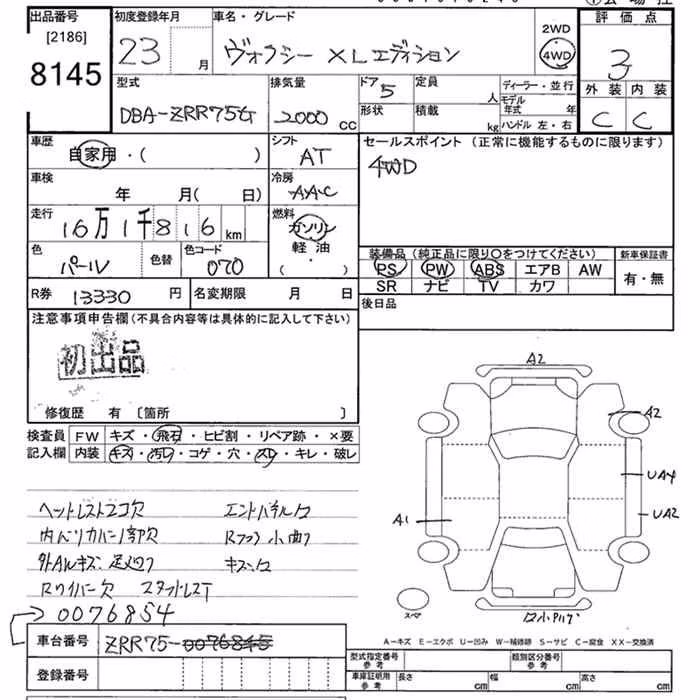 出品番号
[2186]
8145
初度登録年月
23 月
車名・グレード
ヴォクシー XLエディション
2WD
4WD
評価点
3
外装 内装
C C
型式
DBA-ZRR75G
排気量
2000 CC
ドア 5
形状
定員 人
積載 kg
ディーラー・並行
モデル年式 年
ハンドル 左・右
車歴
自家用・( )
シフト
AT
セールスポイント (正常に機能するものに限ります)
4WD
車検
年 月( 日)
冷房
AAC
走行
16万1千816 km
燃料
ガソリン
軽油
( ・ )
色
パール
色替
色コード
070
装備品 (純正品に限り○をつけてください)
PS PW ABS エアB AW
SR ナビ TV カワ
新車保証書
有・無
R券 13330 円
名変期限 月 日
後日品
注意事項申告欄(不具合内容等は具体的に記入して下さい)
初出品
修復歴 有 〔箇所 〕
検査員記入欄
FW キズ・飛石・ヒビ割・リペア跡・×要
内装 キズ・汚レ・コゲ・穴・スレ・キレ・破レ
ヘッドレスト2コ欠
エンドパネルロ
内ベリカバー1部欠
Rフロア小曲り
外AWキズ・足廻り
キズ・ロ
Rワイパー欠 スタットレスT
0076854
車台番号
ZRR75-0076845
登録番号
A2
A2
UA4
UA2
A1
スペア
A-キズ E-エクボ U-凹み W-補修跡 S-サビ C-腐食 XX-交換済
型式指定番号
参考
類別区分番号
参考
車庫証明用
参考
長さ cm
幅 cm
高さ cm